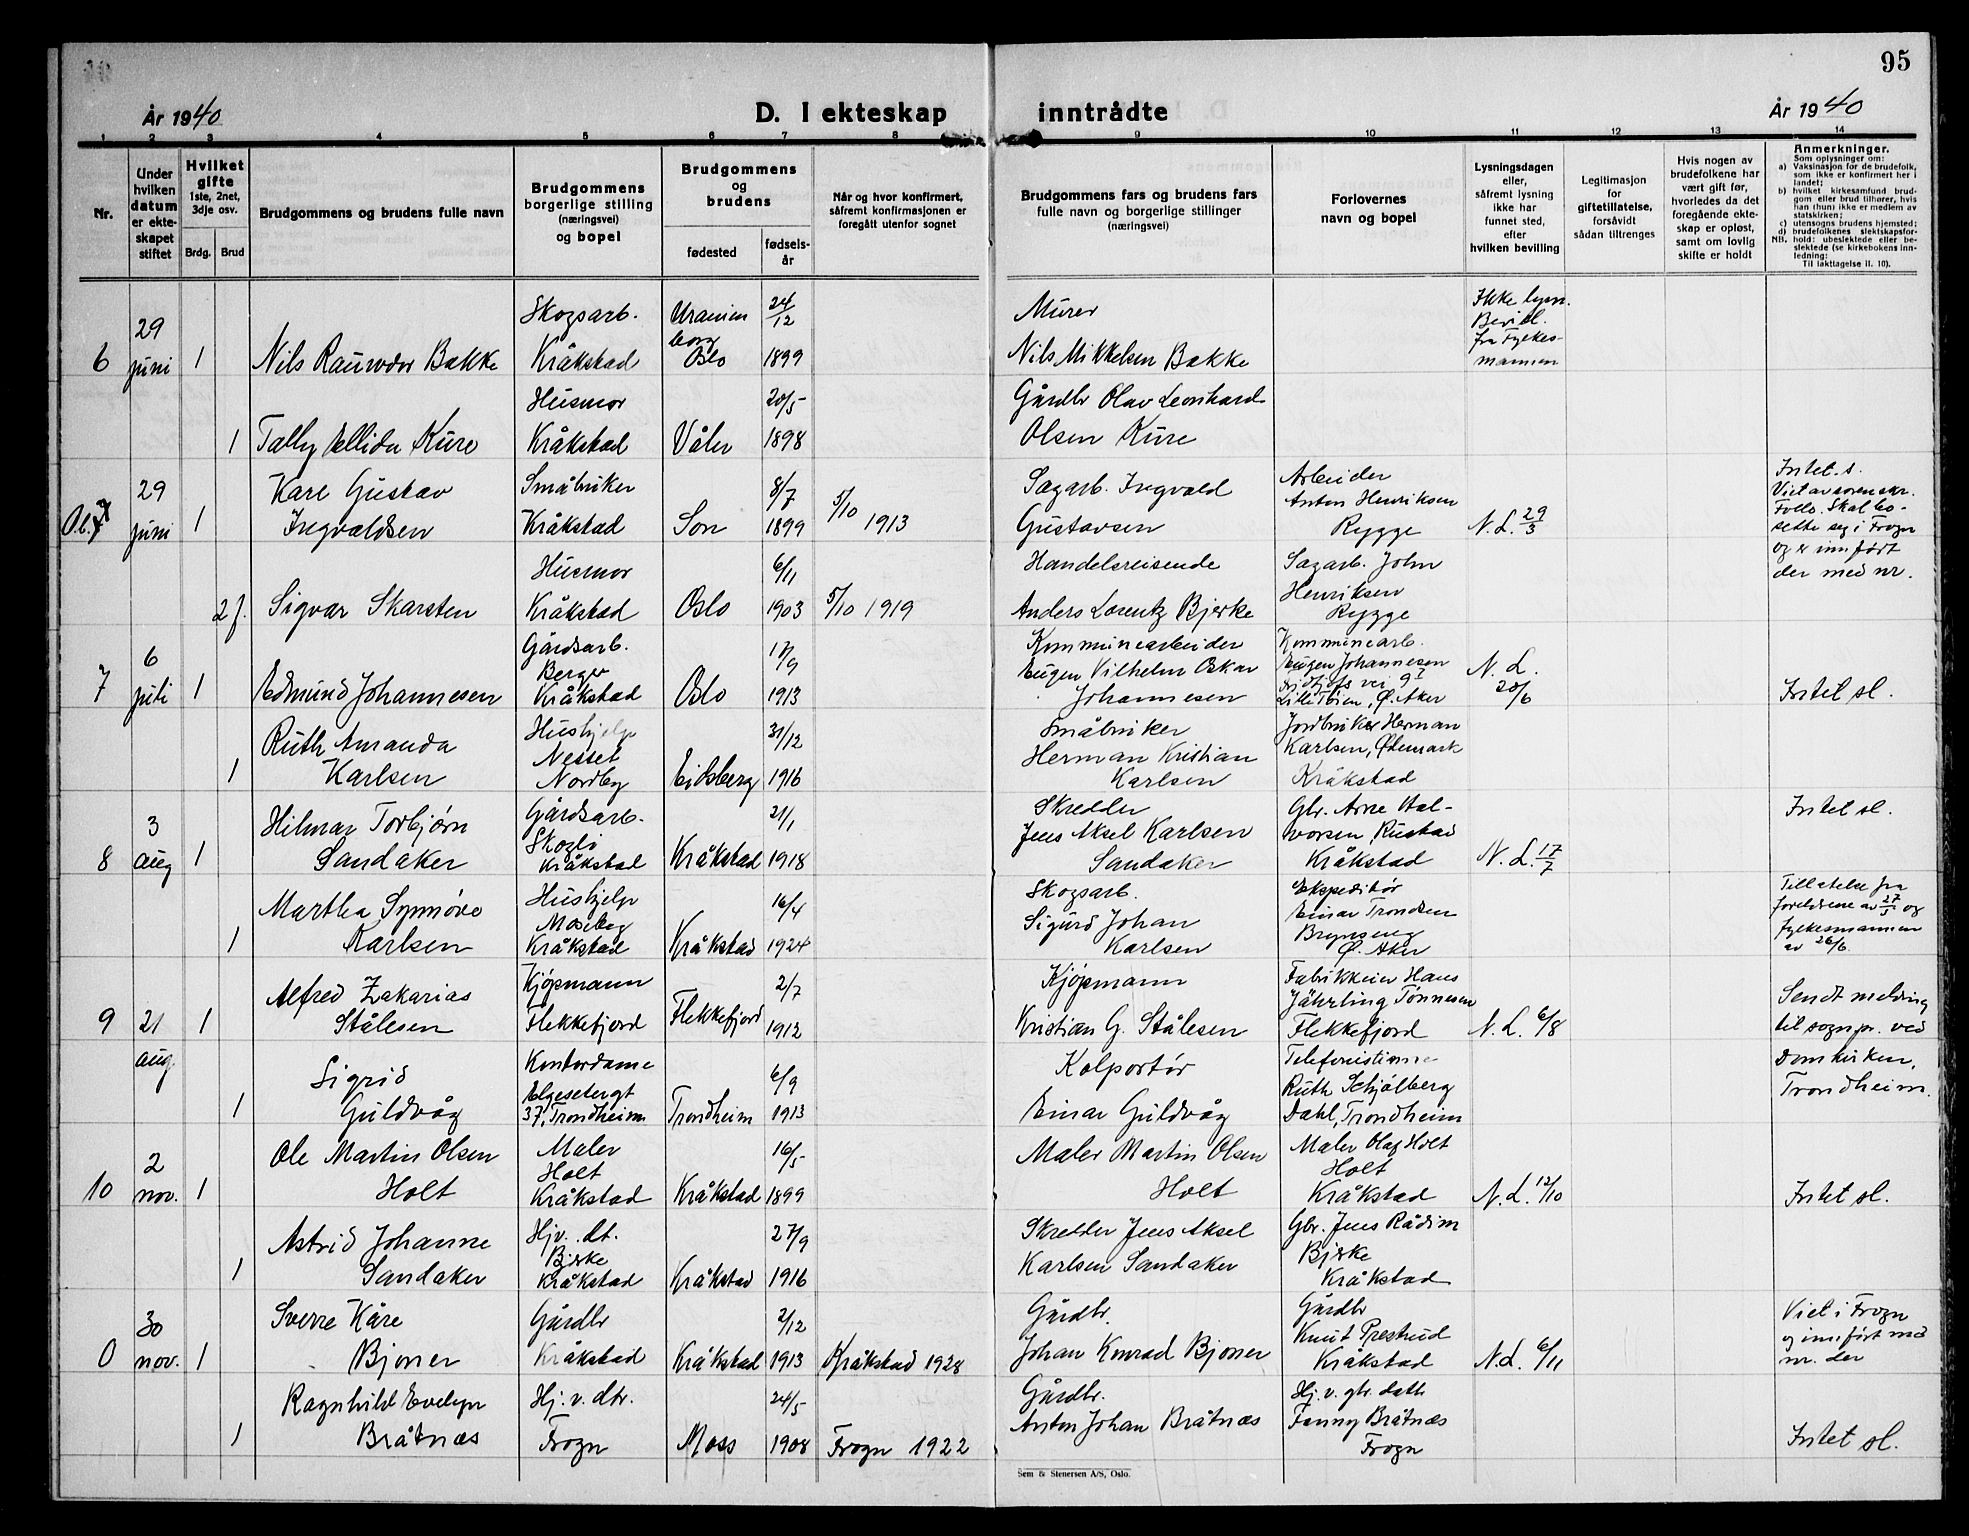 95
År 1940
D. I ekteskap inntrådte
År 1940
1 2 3 4 5 6 7 8 9 10 11 12 13 14
Nr.
Under hvilken datum er ekte-skapet stiftet
Hvilket gifte
1ste, 2net, 3dje osv.
Brdg. Brud
Brudgommens og brudens fulle navn
Brudgommens borgerlige stilling
(næringsvei)
og bopel
Brudgommens og brudens
fødested
fødsels-år
Når og hvor konfirmert,
såfremt konfirmasjonen er
foregått utenfor sognet
Brudgommens fars og brudens fars
fulle navn og borgerlige stillinger
(næringsvei)
Forlovernes
navn og bopel
Lysningsdagen
eller,
såfremt lysning
ikke har
funnet sted,
efter
hvilken bevilling
Legitimasjon
for
giftetillatelse,
forsåvidt
sådan tiltrenges
Hvis nogen av
brudefolkene har
vært gift før,
hvorledes da det
foregående ekte-
skap er opløst,
samt om lovlig
skifte er holdt
Anmerkninger.
Som oplysninger om:
a) Vaksinasjon for de brudefolk, som ikke er konfirmert her i landet;
b) hvilket kirkesamfund brud-gom eller brud tilhører, hvis han (hun) ikke er medlem av statskirken;
c) utensogns brudens hjemsted;
d) brudefolkenes slektskapsfor-hold: ubeslektede eller be-slektede (se kirkebokens inn-ledning;
NB. Til iakttagelse il. 10).
6 29 juni 1 Nils Bakke Skogsarb. Kråkstad Uranienborg Oslo 24/12 1899 Murer Nils Mikkelsen Bakke Ikke lysn. Bevil. fra Fylkes-mannen
1 Kure Husmor Kråkstad Våler 20/5 1898 Gårdbr Olav Leonhard Olsen Kure
29 juni 1 Kare Gustav Ingvaldsen Småbruker Kråkstad Son 8/7 1899 5/10 1913 Sagarb. Ingvald Gustavsen Arbeider Anton Henriksen Rygge N. L. 29/3 Intet. s. Viet av sorenskr. Follo. Skal bo-sette seg i Frogn og er innført der med nr.
2 f. Sigvar Skarsten Husmor Kråkstad Oslo 6/11 1903 5/10 1919 Handelsreisende Anders Lorentz Bjerke Sagarb. John Henriksen Rygge
7 6 juli 1 Edmund Johannesen Gårdsarb. Berger Kråkstad Oslo 17/9 1913 Kommunearbeider Eugen Vilhelm Oskar Johannesen Kommunearb. Eugen Johannesen Fridtjofs vei 9 I Lille Tøien, Ø. Aker N. L. 20/6 Intet sl.
1 Ruth Amanda Karlsen Hushjelp Nesset Nordby Eidsberg 31/12 1916 Småbruker Herman Kristian Karlsen Jordbruker Herman Karlsen, Ødemark Kråkstad
8 3 aug 1 Hilmar Torbjørn Sandaker Gårdsarb. Skogli Kråkstad Kråkstad 21/1 1918 Skredder Jens Aksel Karlsen Sandaker Gbr. Arne Hal-vorsen, Rustad Kråkstad N. L. 17/7 Intet sl.
1 Martha Synnøve Karlsen Hushjelp Moseby Kråkstad Kråkstad 16/4 1924 Skogsarb. Sigurd Johan Karlsen Ekspeditør Einar Trondsen Brynseng Ø. Aker Tillatelse fra foreldrene av 27/5 og fylkesmannen av 26/6.
9 21 aug. 1 Alfred Zakarias Stålesen Kjøpmann Flekkefjord Flekkefjord 2/7 1912 Kjøpmann Kristian G. Stålesen Fabrikkeier Hans Jährling Tønnesen Flekkefjord N. L. 6/8 Sendt melding til sognpr. ved Domkirken, Trondheim.
1 Sigrid Guldvåg Kontordame Elgesetergt 37, Trondheim Trondheim 6/9 1913 Kolportør Einar Guldvåg Telefonistinne Ruth Schjølberg Dahl, Trondheim
10 2 nov. 1 Ole Martin Olsen Holt Maler Holt Kråkstad Kråkstad 16/5 1899 Maler Martin Olsen Holt Maler Olaf Holt Holt Kråkstad N. L. 12/10 Intet sl.
1 Astrid Johanne Sandaker Hjv. dt. Bjerke Kråkstad Kråkstad 27/9 1916 Skredder Jens Aksel Karlsen Sandaker Gbr. Jens Rådim Bjerke Kråkstad
0 30 nov. 1 Sverre Kåre Bjoner Gårdbr Kråkstad Kråkstad 2/12 1913 Kråkstad 1928 Gårdbr. Johan Konrad Bjoner Gårdbr Knut Prestrud Kråkstad N. L. 6/11 Viet i Frogn og innført med nr. der
1 Ragnhild Evelyn Bråtnæs Hj. v. dtr. Frogn Moss 24/5 1908 Frogn 1922 Gårdbr. Anton Johan Bråtnæs Hj. v. gbr. datt. Fanny Bråtnæs Frogn Intet sl.
Sem & Stenersen A/S, Oslo.